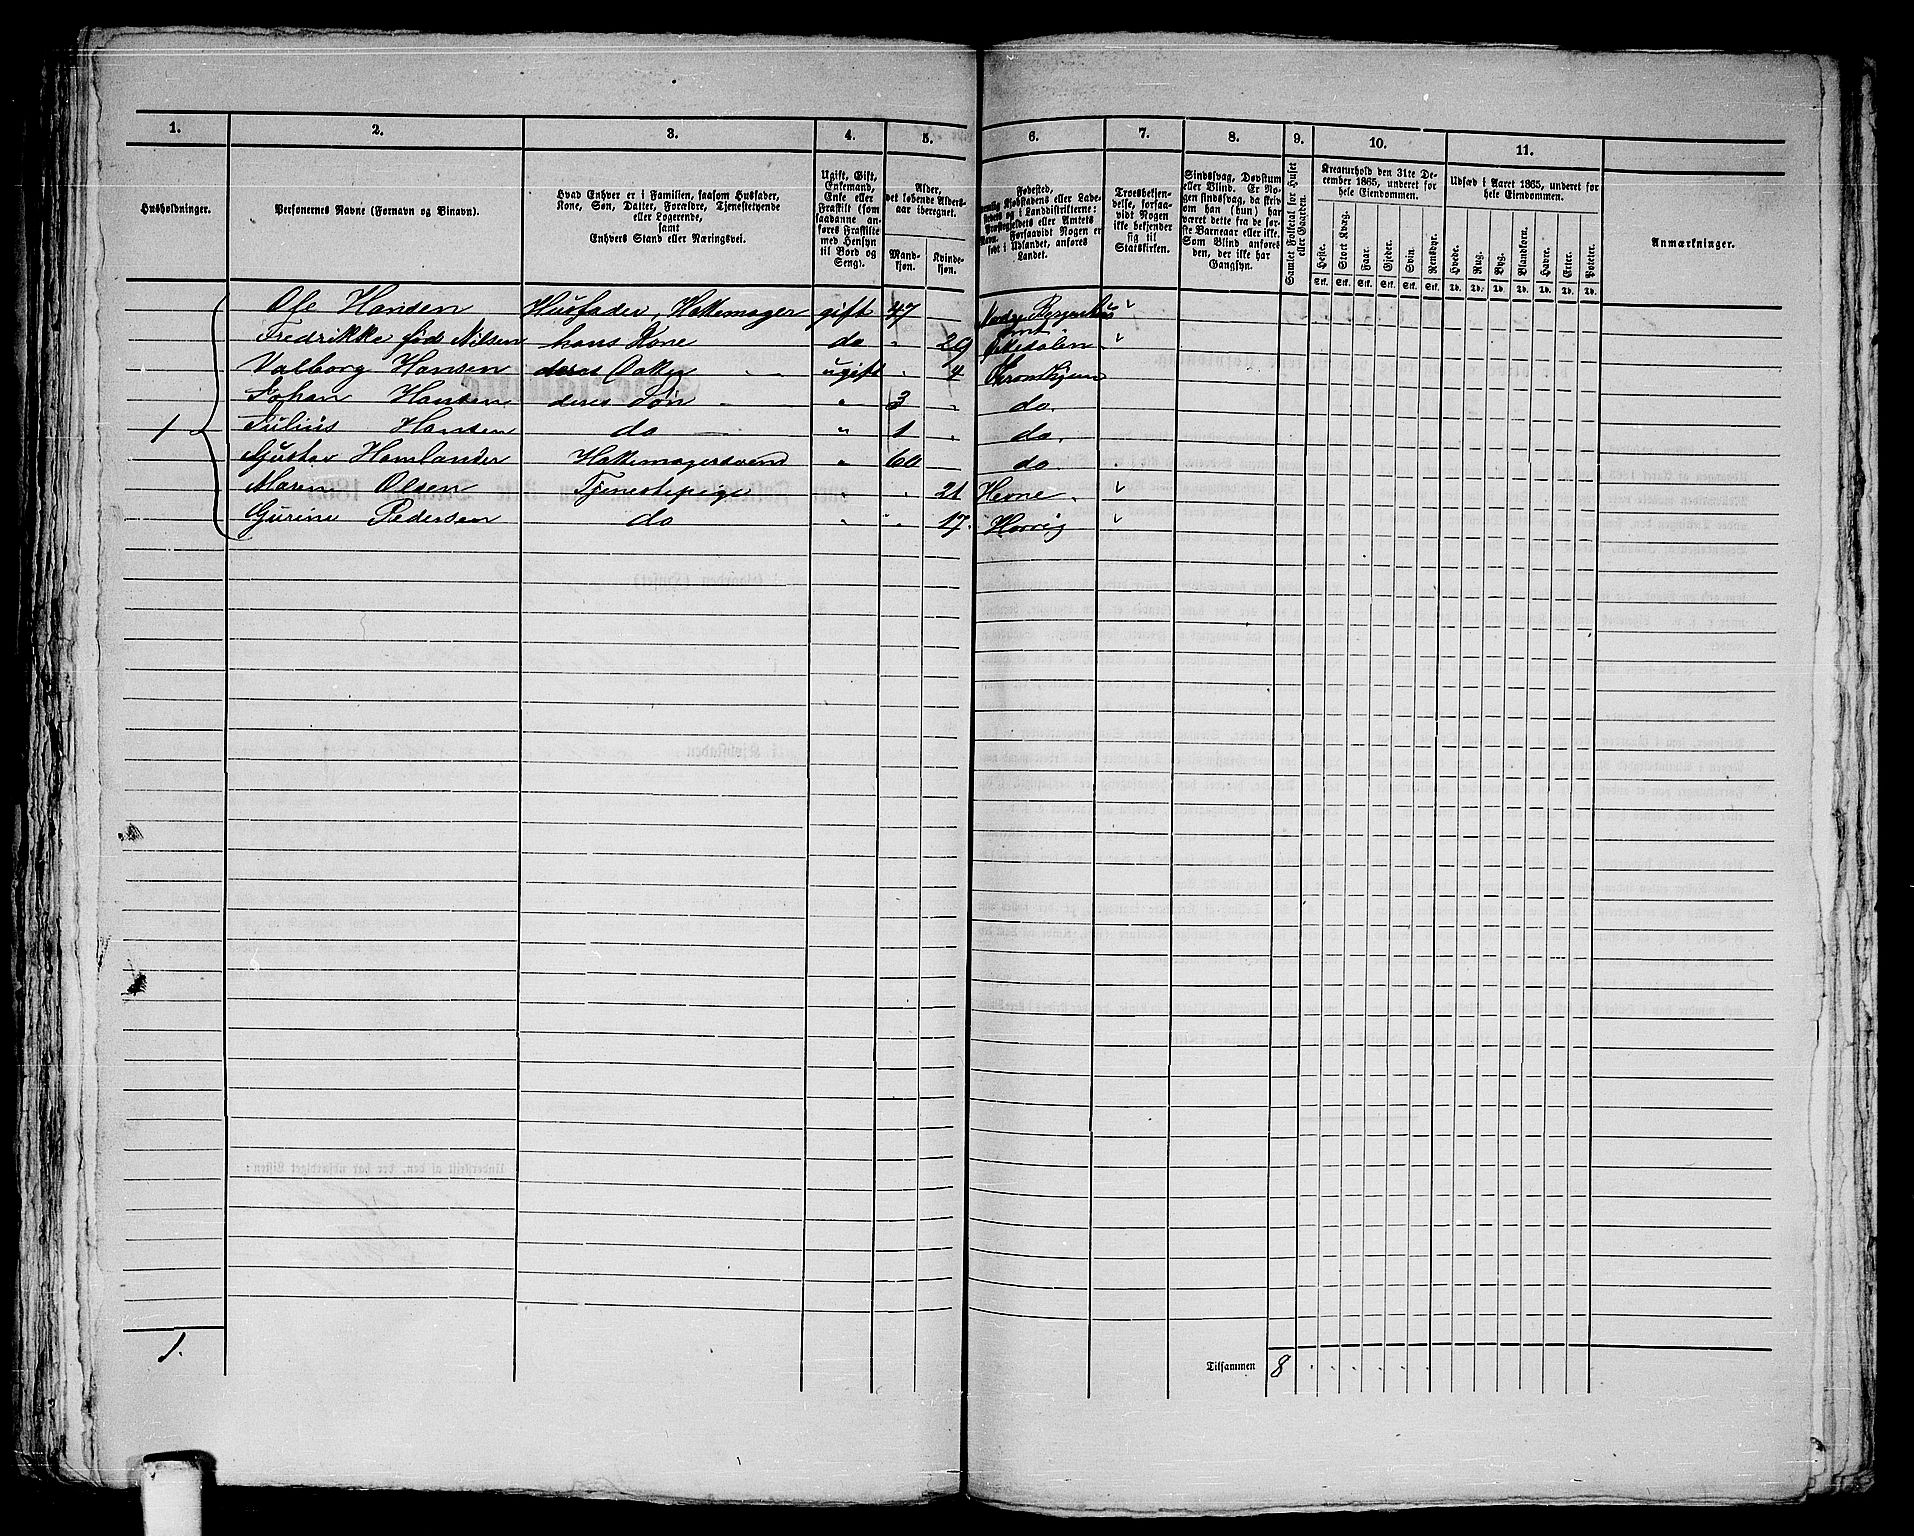 1. 2. 3. 4. 5. 6. 7. 8. 9. 10. 11.
Husholdninger.
Personernes Navne (Fornavn og Binavn).
Hvad Enhver er i Familien, saasom Husfader,
Kone, Søn, Datter, Forældre, Tjenestetyende
eller Logerende,
samt
Enhvers Stand eller Næringsvei.
Ugift, Gift,
Enkemand,
Enke eller
Fraskilt (som
saadanne an-
føres Fraskilte
med Hensyn
til Bord og
Seng).
Alder,
det løbende Alders-
aar iberegnet.
Mand-
kjøn.
Kvinde-
kjøn.
Fødested,
nemlig Kjøbstadens eller Lade-
stedets og i Landdistrikterne:
Præstegjeldets eller Amtets
Navn. Forsaavidt Nogen er
født i Udlandet, anføres
Landet.
Troesbekjen-
delse, forsaa-
vidt Nogen
ikke bekjender
sig til
Statskirken.
Sindssvag, Døvstum
eller Blind. Er No-
gen sindssvag, da skriv
om han (hun) har
været dette fra de før-
ste Barneaar eller ikke.
Som Blind anføres
den, der ikke har
Gangsyn.
Samlet Folketal for Huset
eller Gaarden.
Kreaturhold den 31te De-
cember 1865, underet for
hele Eiendommen.
Heste. Stort Kvæg. Faar. Gjeder. Svin. Rensdyr.
Stk. Stk. Stk. Stk. Stk. Stk.
Udsæd i Aaret 1865, underet for
hele Eiendommen.
Hvede. Rug. Byg. Blandkorn. Havre. Erter. Poteter.
Td. Td. Td. Td. Td. Td. Td.
Anmærkninger.
Ole Hansen Husfader, Hattemager gift 47 Nordr Bergenhus "
Amt
Fredrikke fød Nilsen hans Kone do " 29 "
Valborg Hansen deres Datter ugift " 4 Trondhjem
Johan Hansen deres Søn " 3 " do.
1 Julius Hansen do " 1 " do.
Gustav Hamlander Hattemagersvend " 60 do.
Maren Olsen Tjenestepige " " 21 Hevne "
Gurine Pedersen do " " 17. "
1.
Tilsammen 8